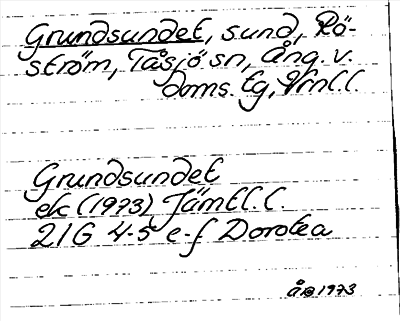 Grundsundet, sund, Rö-
ström, Tåsjö sn, Ång. v.
doms. tg, Vrnl.l.
Grundsundet
ek (1973) Jämtl. l.
21G 4-5 e-f Dorotea
åB 1973